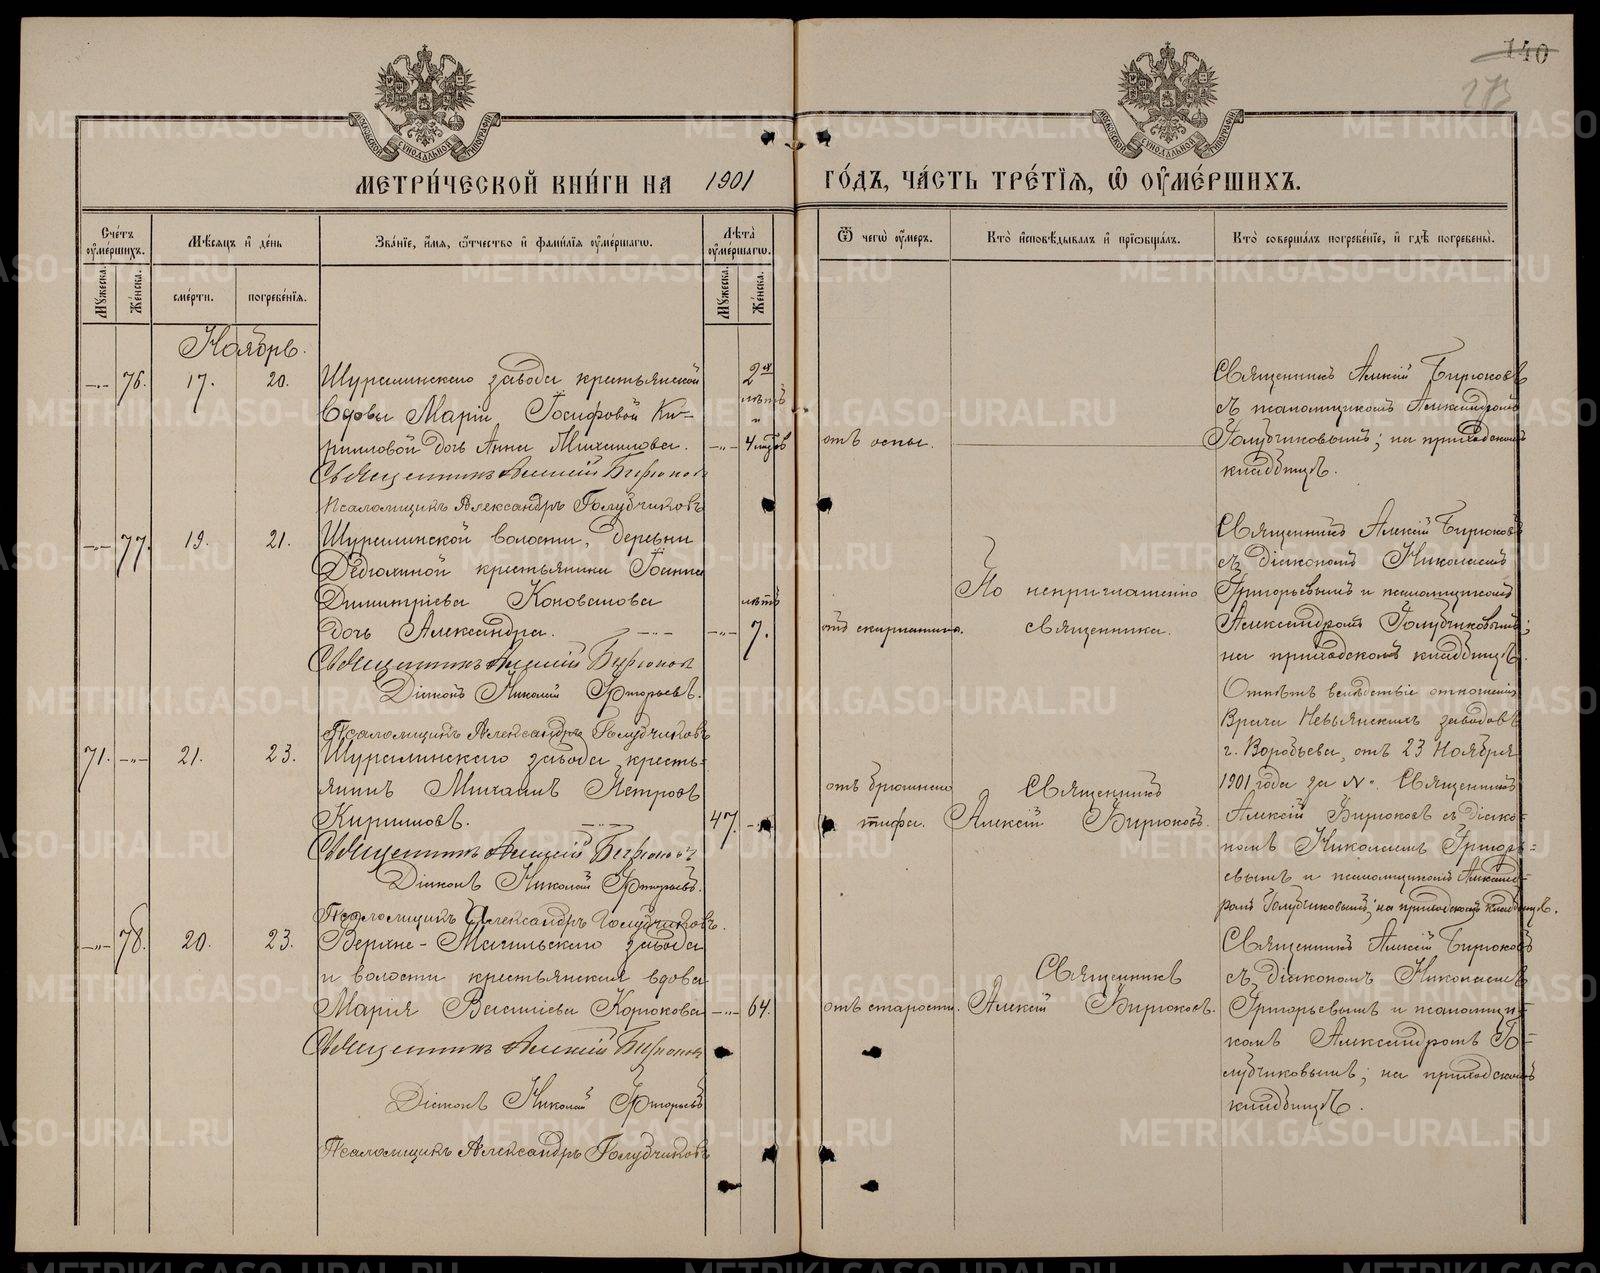 140
273
МЕТРИ́ЧЕСКОЙ КНИ́ГИ НА 1901 ГО́ДЪ, ЧА́СТЬ ТРЕ́ТІѦ, Ѿ ОУМЕ́РШИХЪ.
Сче́тъ оумершихъ.
Мꙋжеска. Же́нска.
Мѣсѧцъ и де́нь
сме́рти. погребе́нїѧ.
Зва́нїе, и́мѧ, ѻ҆́тчество и фами́лїѧ оуме́ршагѡ.
Лѣта оуме́ршагѡ.
Мꙋжеска. Же́нска.
Ѿ чегѡ̀ оу́меръ.
Кто̀ и҆сповѣ́дывалъ и҆ прїѡбща́лъ.
Кто̀ соверша́лъ погребе́нїе, и҆ гдѣ̀ погребены̀.
Ноябрь.
76. 17. 20.
Шуралинскаго завода крестьянской
вдовы Маріи Іосифовой Ки-
рилловой дочь Анна Михаилова.
Священникъ Алексій Бирюковъ
Псаломщикъ Александръ Голубчиковъ
2 лѣтъ и 4 мцвъ
отъ оспы.
Священникъ Алексій Бирюковъ
съ псаломщикомъ Александромъ
Голубчиковымъ; на приходскомъ
кладбищѣ.
77. 19. 21.
Шуралинской волости, деревни
крестьянина Іоанна
Димитріева Коновалова
дочь Александра.
Священникъ Алексій Бирюковъ
Діаконъ Николай Григорьевъ.
Псаломщикъ Александръ Голубчиковъ
лѣтъ
7.
отъ скарлатины.
По неприглашенію
священника.
Священникъ Алексій Бирюковъ
съ діакономъ Николаемъ
Григорьевымъ и псаломщикомъ
Александромъ Голубчиковымъ;
на приходскомъ кладбищѣ.
71. 21. 23.
Шуралинскаго завода кресть-
янинъ Михаилъ Петровъ
Кирилловъ.
Священникъ Алексій Бирюковъ
Діаконъ Николай Григорьевъ.
Псаломщикъ Александръ Голубчиковъ.
47.
отъ брюшнаго
тифа.
Священникъ
Алексій Бирюковъ.
Отпѣтъ вслѣдствіе отношенія
Врача Невьянскихъ заводовъ
г. Воробьева, отъ 23 Ноября
1901 года за №. Священникъ
Алексій Бирюковъ съ діако-
номъ Николаемъ Григорь-
евымъ и псаломщикомъ Александ-
ромъ Голубчиковымъ; на приходскомъ кладбищѣ.
78. 20. 23.
Верхне-Тагильскаго завода
и волости крестьянская вдова
Марія Васильева Корюкова
Священникъ Алексій Бирюковъ
Діаконъ Николай Григорьевъ
Псаломщикъ Александръ Голубчиковъ
64.
отъ старости.
Священникъ
Алексій Бирюковъ.
Священникъ Алексій Бирюковъ
съ діакономъ Николаемъ
Григорьевымъ и псаломщи-
комъ Александромъ Го-
лубчиковымъ; на приходскомъ
кладбищѣ.
METRIKI.GASO-URAL.RU